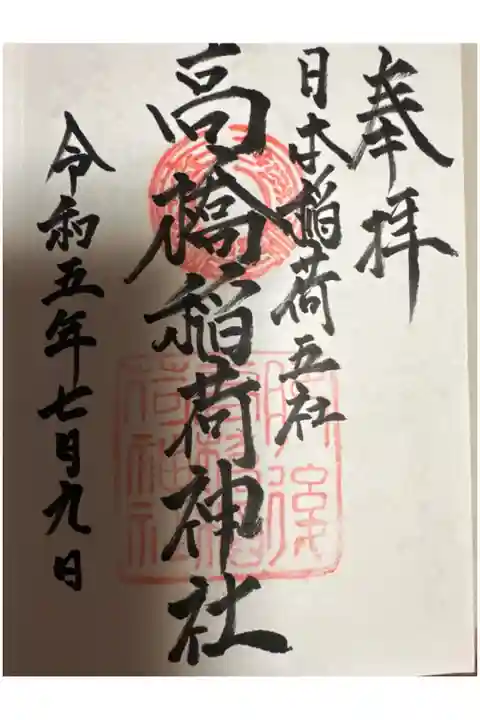 奉拝
日本稲荷五社
高橋稲荷神社
令和五年七月九日